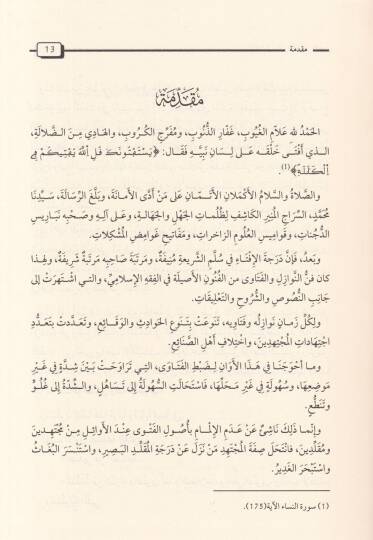 مقدمة
13
مُقَدِّمَة
الحَمْدُ لله عَلاَّمِ الغُيُوبِ، غَفَّارِ الذُّنُوبِ، ومُفَرِّجِ الكُرُوبِ، والهَادِي مِنَ الضَّلالَةِ،
الـذي أَفْتَـى خَلْقَـه عَـلى لِسَـانِ نَبِيِّـهِ فَقَـال: ﴿يَسْتَفْتُونَكَ قُلِ اللَّهُ يُفْتِيكُمْ فِي
الْكَلَالَةِ﴾(1).
والصَّلاةُ والسَّلامُ الأَكْمَلانِ الأَتَمَّـانِ عَلَى مَنْ أَدَّى الأَمَانَةَ، وبَلَّغَ الرِّسَالَةَ، سَيِّدِنَا
مُحَمَّدٍ، السِّرَاجِ المُنِيرِ الكَاشِفِ لِظُلُماتِ الجَهْلِ والجَهَالَةِ، وعَلَى آلِهِ وصَحْبِهِ نَبَارِيسِ
الدُّجُنَاتِ، وقَوَامِيسِ العُلُومِ الزَاخِرَاتِ، ومَفَاتِيحِ غَوامِضِ المُشْكِلاتِ.
وبَعدُ، فَإِنَّ دَرَجَةَ الإِفْتَاءِ فِي سُلَّمِ الشَّرِيعَةِ مُنِيفَةٌ، ومَرتَبَةَ صَاحِبِهِ مَرتَبَةٌ شَرِيفَةٌ، ولِهذا
كان فنُّ النَّوازِلِ والفَتَاوَى من الفُنُونِ الأَصِيلَةِ في الفِقهِ الإِسلامِيِّ، والتـي اشْتَهَرَتْ إلى
جَانِبِ النُّصُوصِ والشُّرُوحِ والتَّعْلِيقَاتِ.
ولِكُلِّ زَمانٍ نَوازِلُه وفَتَاوِيه، تَنَوعَتْ بِتَنَوعِ الحَوادِثِ والوَقَـائِعِ، وتَعَـدَّدتْ بتَعَـدُّدِ
اجْتِهَادَاتِ المُجْتَهِدِينَ، واخْتِلافِ أَهْلِ الصَّنَائِعِ.
ومـا أَحْوَجَنَـا فِي هَـذَا الأَوَانِ لِضَبْطِ الفَتَـاوَى، التِـي تَرَاوَحَتْ بَيْنَ شِدَّةٍ فِي غَيْرِ
مَوضِعِهَا، وسُهُولَةٍ فِي غَيْرِ مَحَلِّهَا، فَاسْتَحَالَتِ السُّهُولَةُ إِلَى تَسَاهُلٍ، والشِّدَّةُ إِلَى غُلُوٍّ
وتَنَطُّعٍ.
وإِنَّمَا ذَلِكَ نَاشِئٌ عَنْ عَدَمِ الإِلْمَامِ بِأُصُولِ الفَتْوى عِنْدَ الأَوائِلِ مِنْ مُجْتَهِدِينَ
ومُقَلِّدِينَ، فانْتَحَلَ صِفَةَ المُجْتَهِدِ مَنْ نَزَلَ عَنْ دَرَجَةِ المُقَلِّـدِ البَصِيرِ، واسْتَنْسَرَ البُغَاثُ
واسْتَبْحَرَ الغَدِيرُ.
(1) سورة النساء الآية(175).